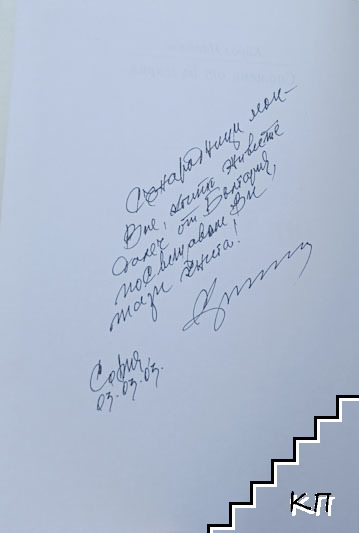 Сънародници мои –
Вие, които живеете
далеч от България,
посвещавам Ви
тази книга!
София,
03.03.03.
КП